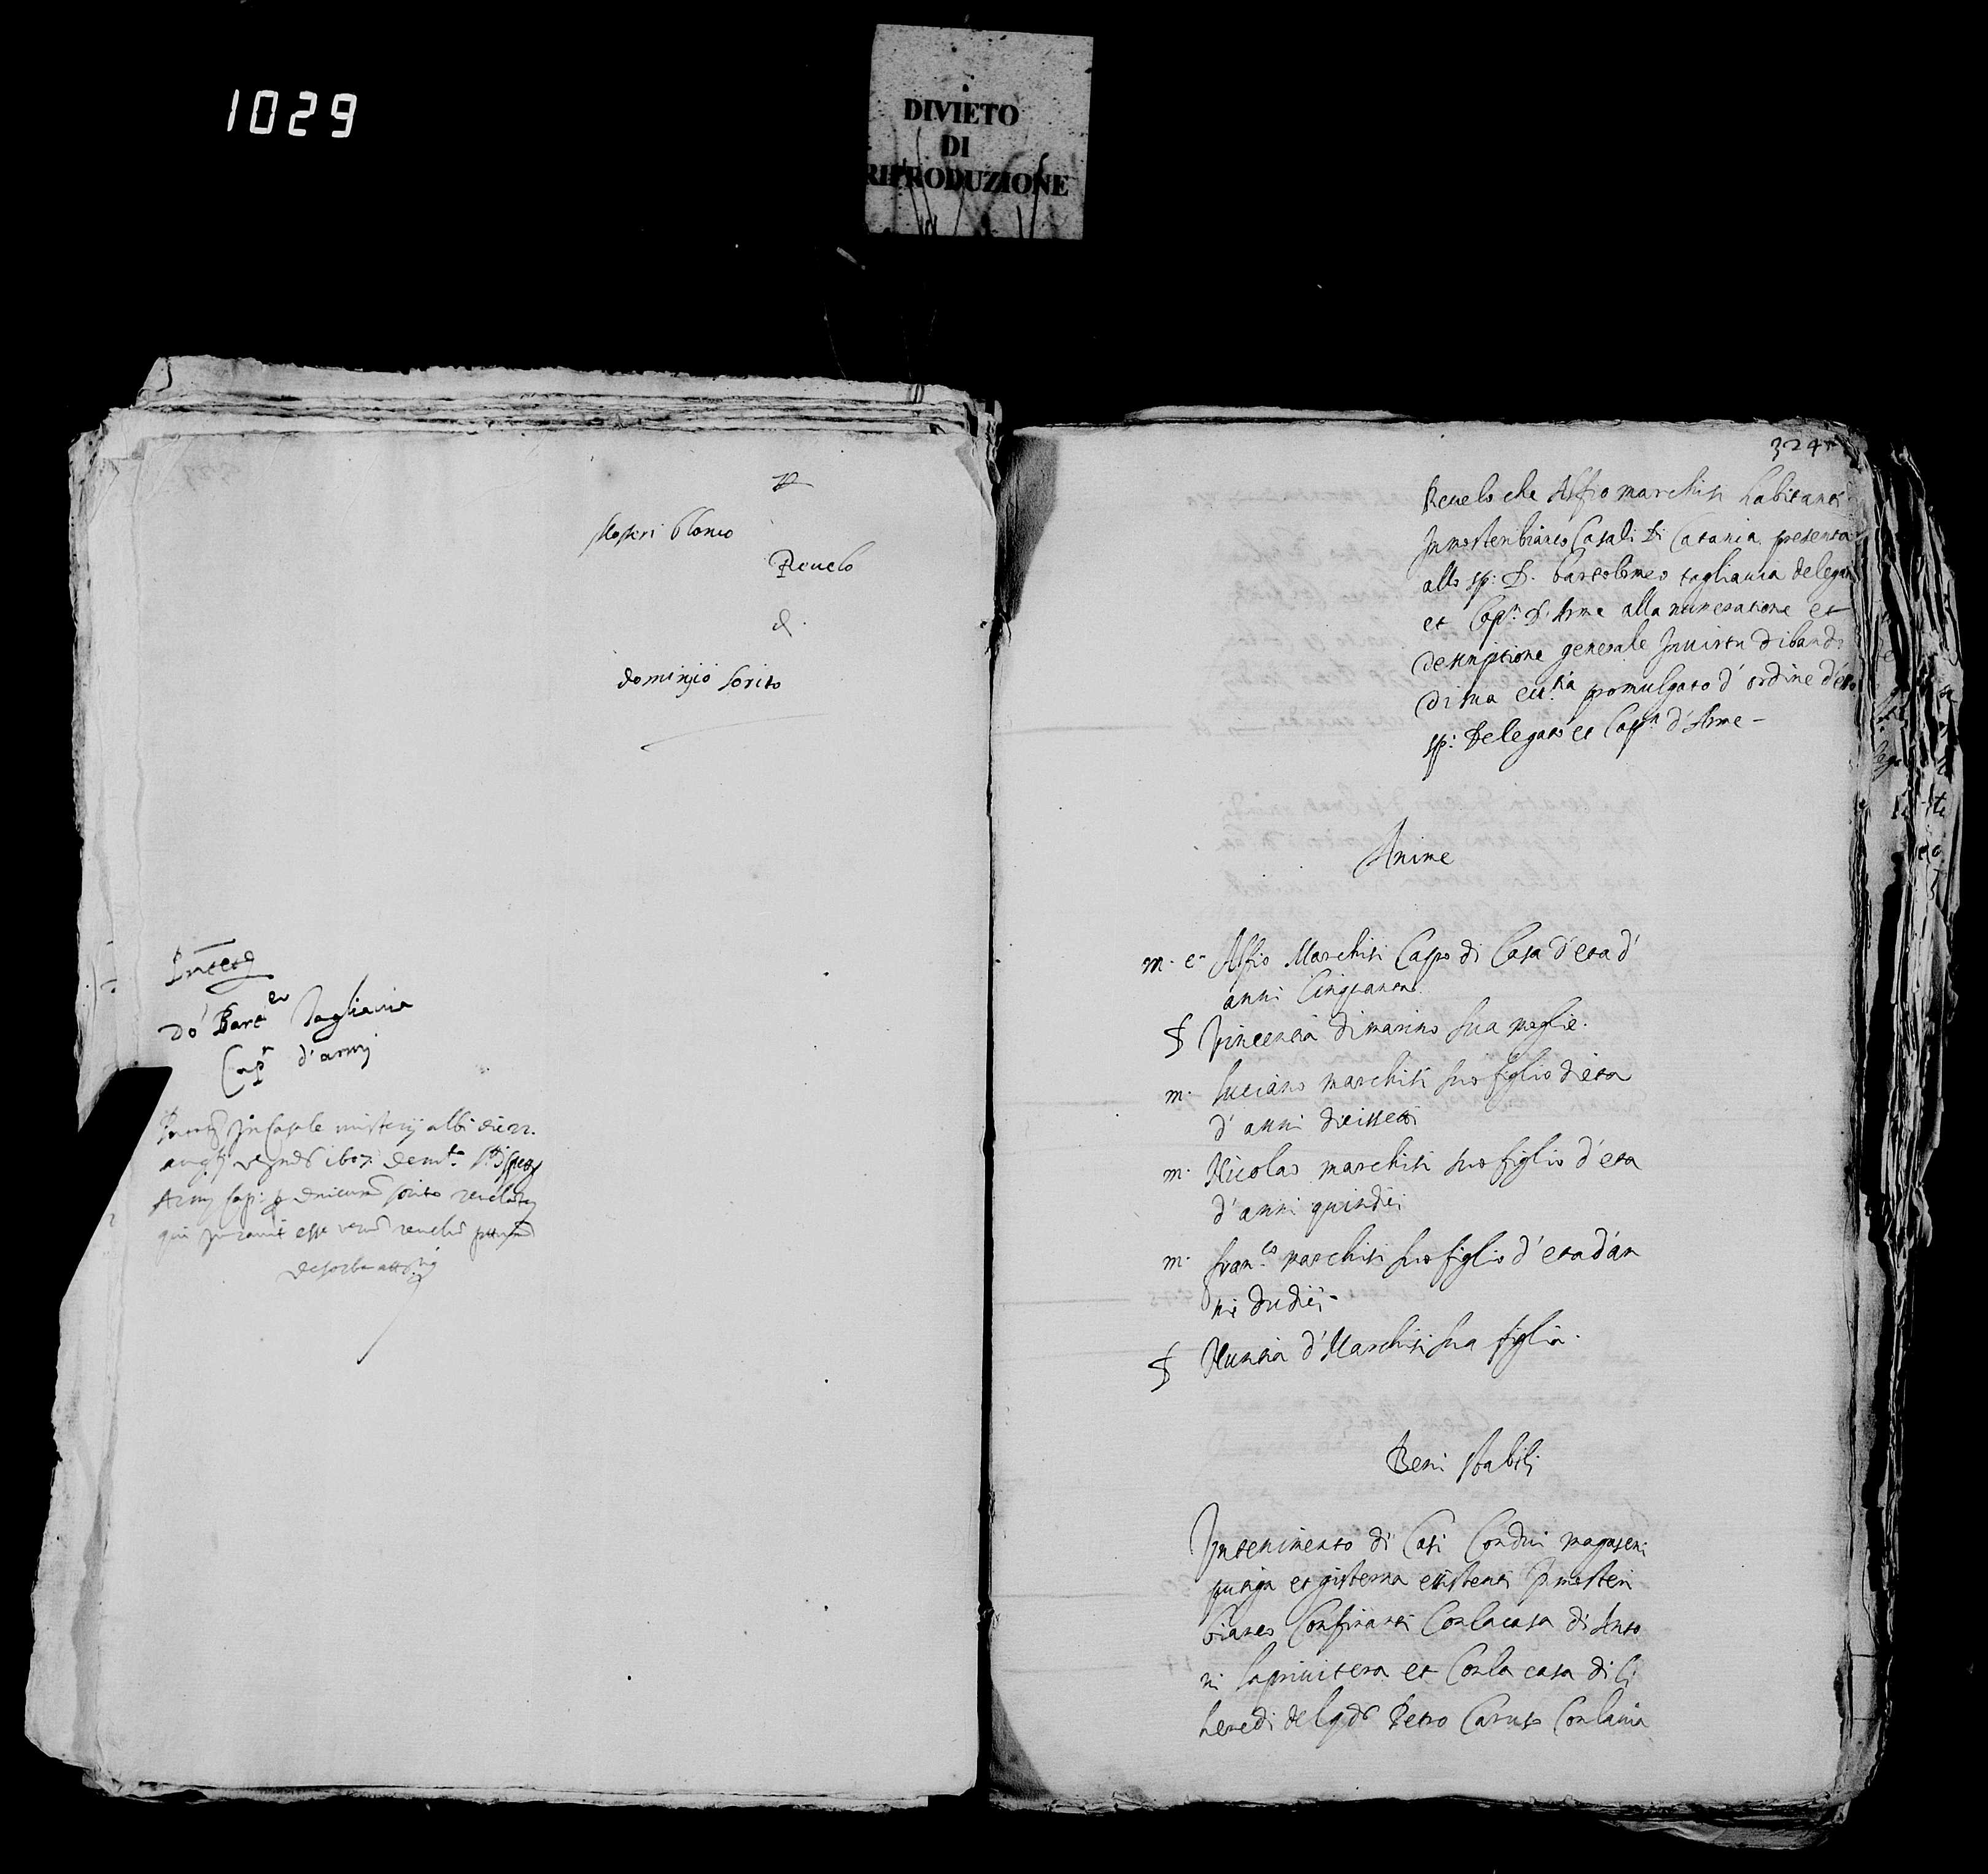 1029
DIVIETO
DI
RIPRODUZIONE
Mosteri blanco
Revelo
d.
dominijco sorito
Do' Bart.eo Tagliavia
Cap.n d'armi
In Casale misterij albi die 22.
augti 1607.
Army Cap:
qui juravit esse
324
Revelo che Alfio marchisi habitanti
In mosteribianco Casali di Catania presenta
allo sp: D. bartolomeo tagliavia delegato
et Cap.n d'Arme alla numeratione et
descriptione generale In virtu di bando
di sua ecc.tia promulgato d'ordine d'esso
sp: Delegato et Cap.n d'Arme -
Anime
m. c. Alfio Marchisi Capo di Casa d'eta d'
anni Cinquanta
f Vincentia di marino sua moglie.
m. Luciano marchisi suo figlio d'eta
d'anni dicissetti
m. Nicolao marchisi suo figlio d'eta
d'anni quindici
m. fran.co marchisi suo figlio d'eta d'an
ni dudici -
f Nuntia d'Marchisi sua figlia.
Beni stabili
Intenimento di Casi Con dui magaseni
et gisterna existenti In mosteri
bianco Confinanti Con la casa di Anto
ni laprivitera et Con la casa di li
heredi del qdo Petro Caruso Con la via